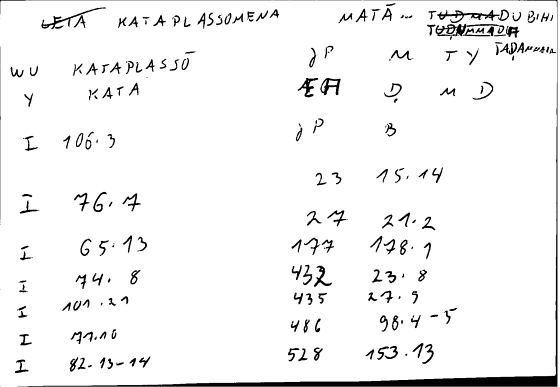 KATAPLASSOMENA MATĀ... DUBIHI
WU KATAPLASSŌ JP M T Y
Y KATA Ḍ M D
I 106.3 JP B
23 15.14
I 76.7
27 21.2
I 65.13 177 178.1
I 74.8 432 23.8
I 101.21 435 27.9
I 71.10 486 98.4-5
I 82.13-14 528 153.13